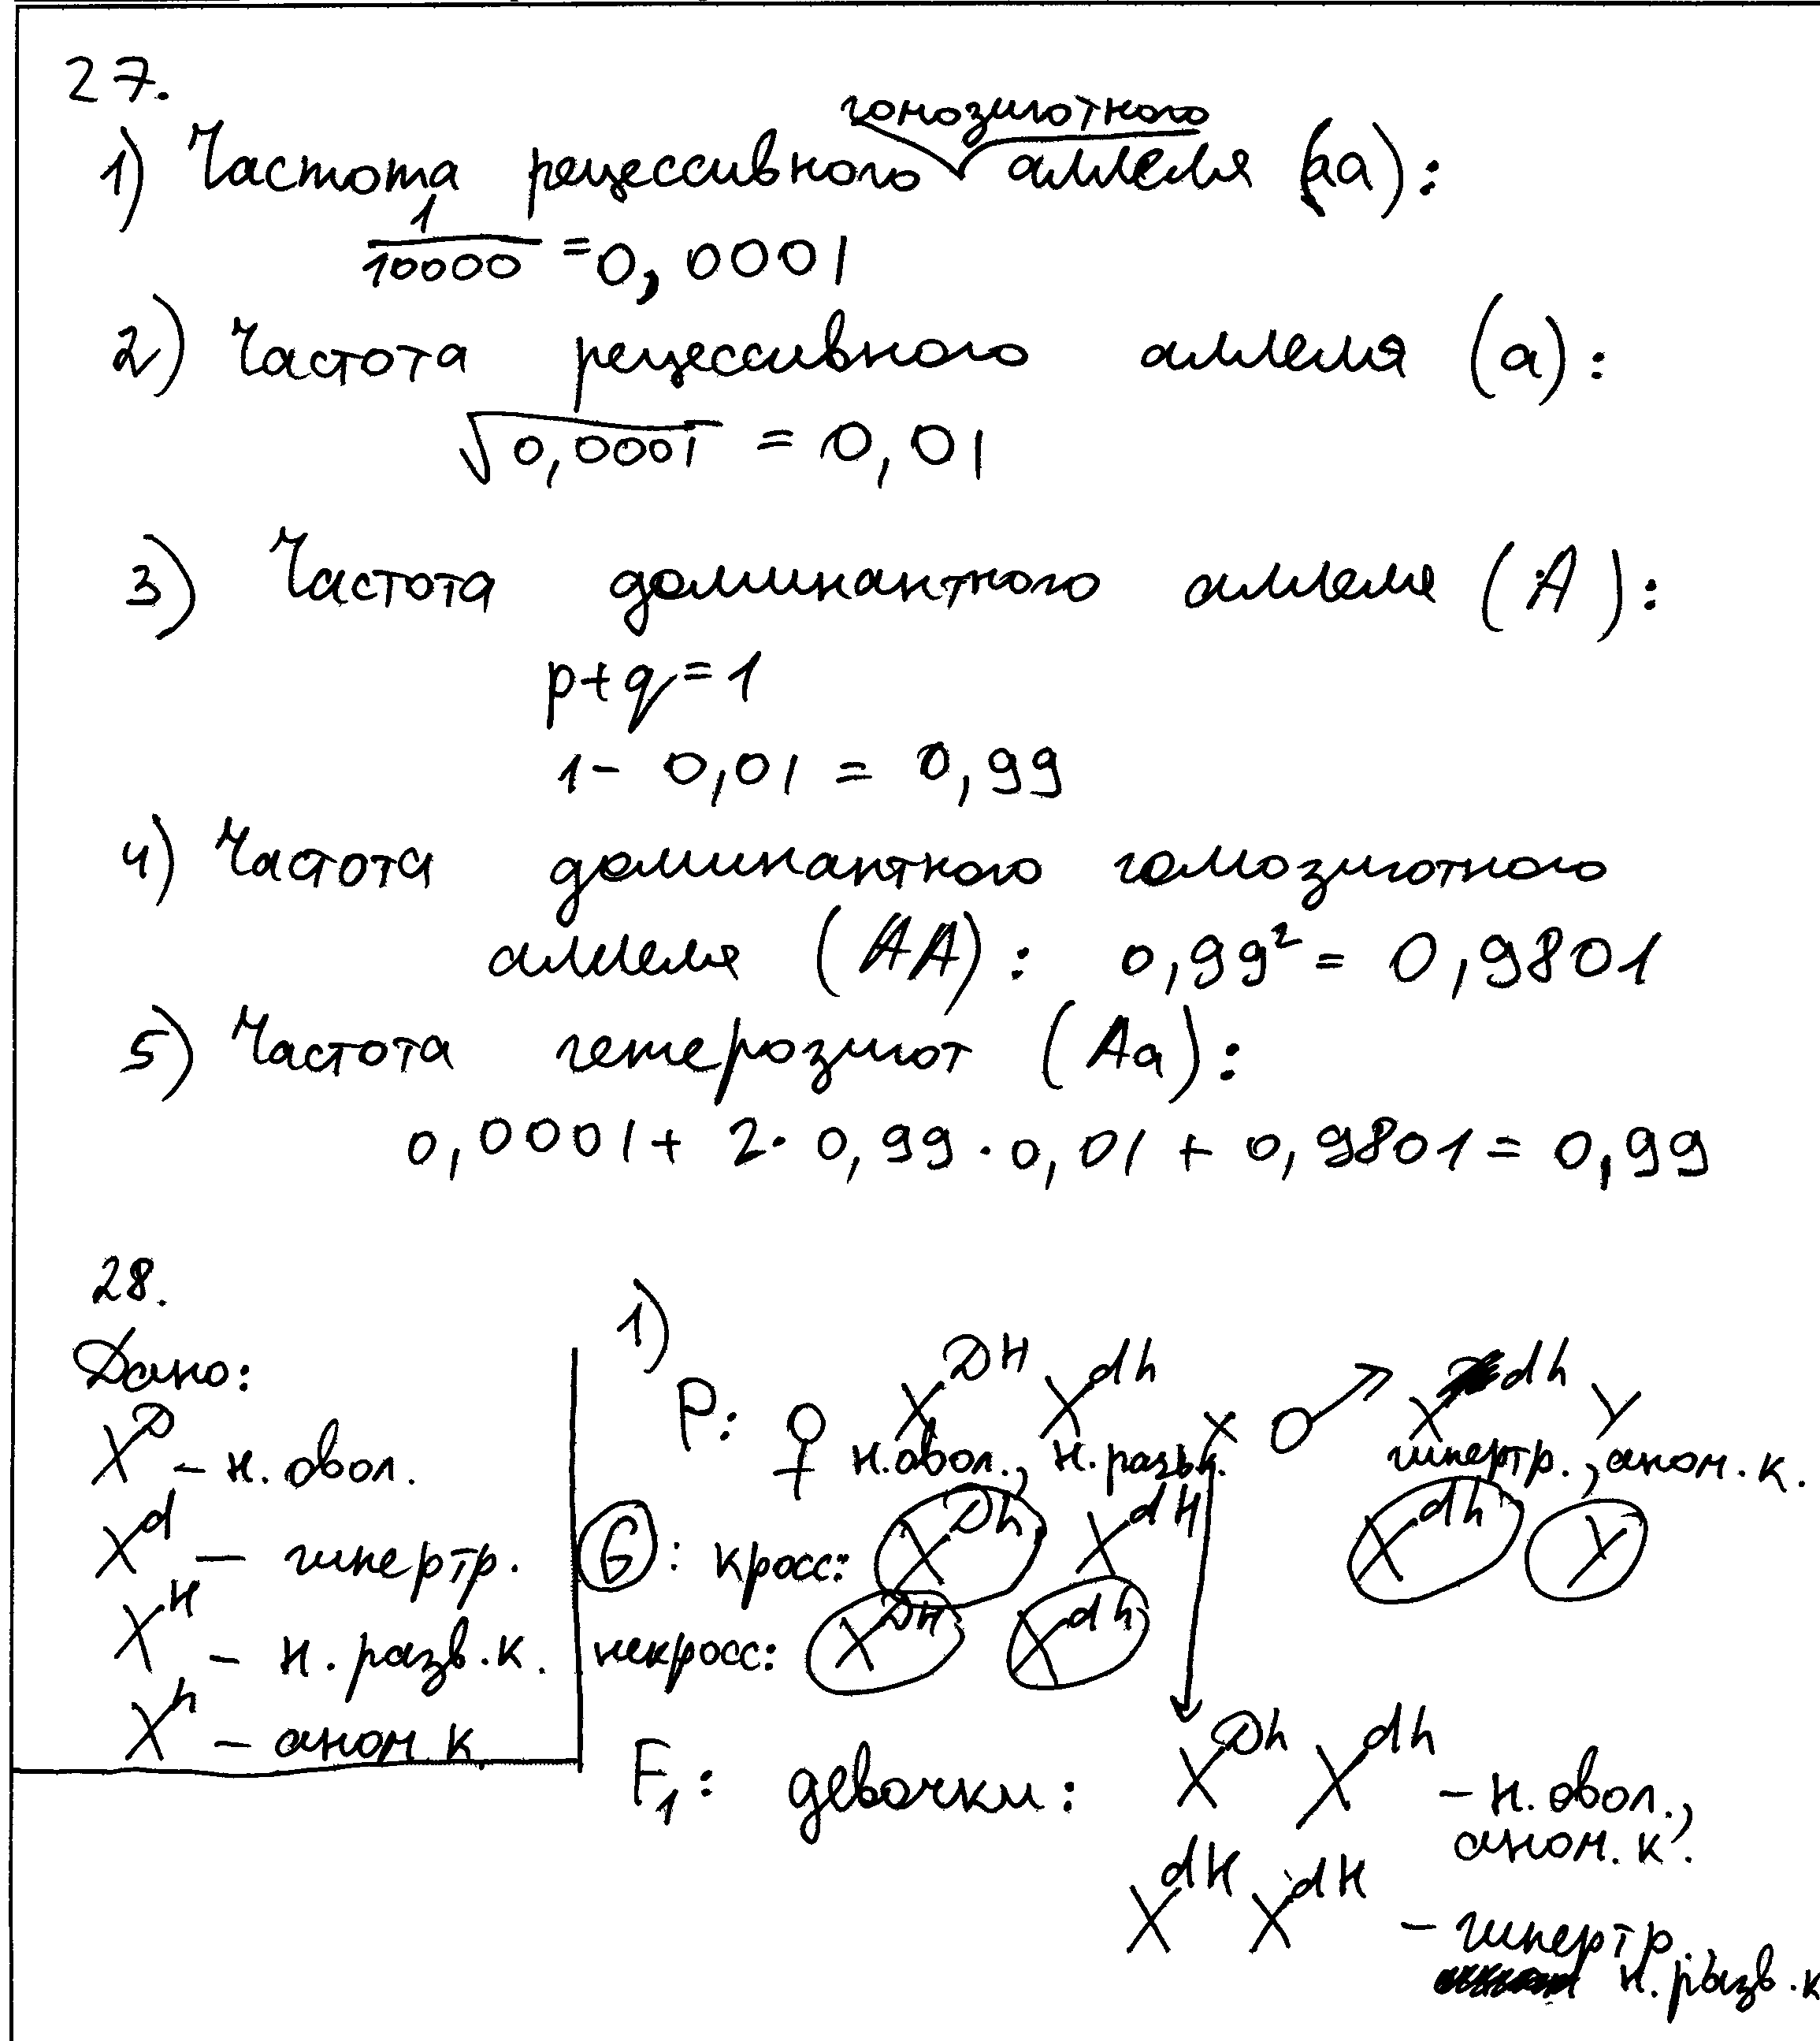 27.
гомозиготного
1) Частота рецессивного аллеля (аа):
1/10000 = 0,0001
2) Частота рецессивного аллеля (а):
√0,0001 = 0,01
3) Частота доминантного аллеля (А):
p+q=1
1- 0,01 = 0,99
4) Частота доминантного гомозиготного
аллеля (АА): 0,99² = 0,9801
5) Частота гетерозигот (Аа):
0,0001 + 2 · 0,99 · 0,01 + 0,9801 = 0,99
28.
Дано:
X^D – н. овол.
X^d – гипертр.
X^H – н. разв. к.
X^h – аном. к
1)
P: ♀ X^DH X^dh × ♂ X^dh Y
н. овол., н. разв. к. гипертр., аном. к.
G: кросс: X^Dh X^dH X^dh Y
некросс: X^DH X^dh
F₁: девочки: X^Dh X^dh – н. овол.,
аном. к.
X^dH X^dH – гипертр.,
н. разв. к